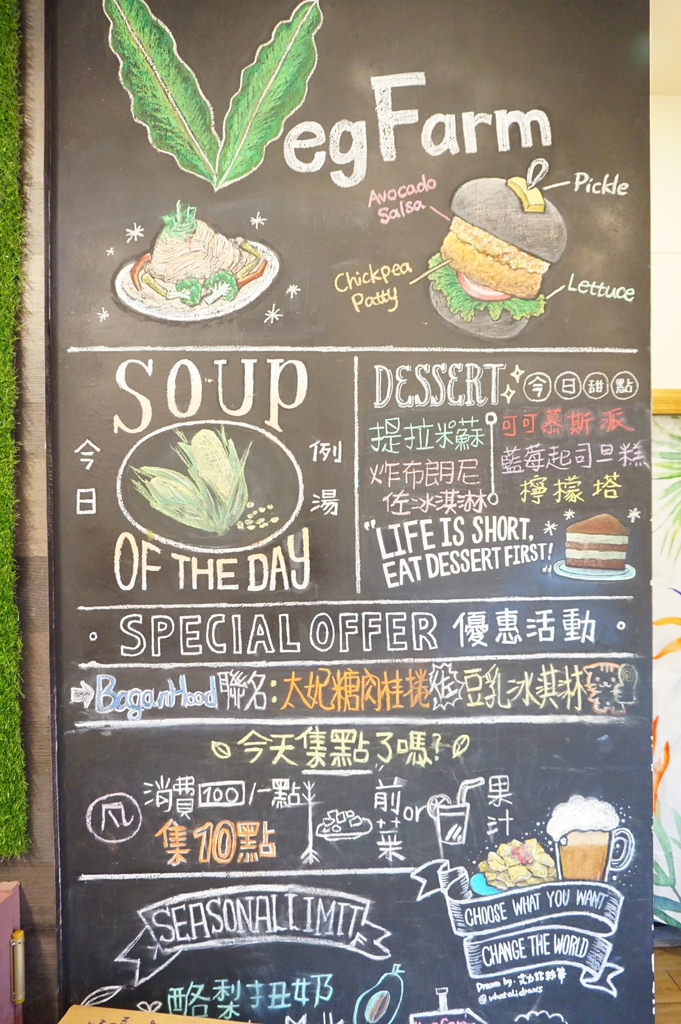 VegFarm
Avocado
Salsa
Pickle
Chickpea
Patty
Lettuce
SOUP
今日
例湯
OF THE DAY
DESSERT 今日甜點
提拉米蘇
炸布朗尼
佐冰淇淋
可可慕斯派
藍莓起司旦糕
檸檬塔
"LIFE IS SHORT,
EAT DESSERT FIRST!"
· SPECIAL OFFER 優惠活動 ·
BaganHood 聯名: 太妃糖肉桂捲 豆乳冰淇淋
今天集點了嗎?
消費 100 /一點
集10點
前菜 or 果汁
CHOOSE WHAT YOU WANT
CHANGE THE WORLD
Drawn by.
@whatalidraws
SEASONAL LIMIT
酪梨拉奶